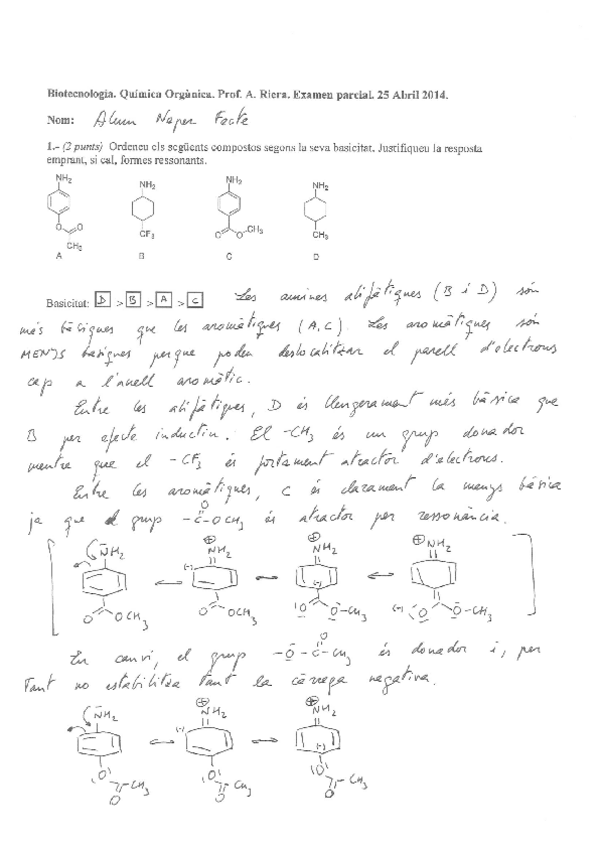 Biotecnologia. Química Orgànica. Prof. A. Riera. Examen parcial. 25 Abril 2014.
Nom: Alum Neper Fecte
1.- (2 punts) Ordeneu els següents compostos segons la seva basicitat. Justifiqueu la resposta
emprant, si cal, formes ressonants.
NH2 NH2 NH2 NH2
O O CF3 O O CH3 CH3
CH3
A B C D
Basicitat: D > B > A > C Les amines alifàtiques (B i D) són
més bàsiques que les aromàtiques (A, C). Les aromàtiques són
MENYS bàsiques perque poden deslocalitzar el parell d'electrons
cap a l'anell aromàtic.
Entre les alifàtiques, D és lleugerament més bàsica que
B per efecte inductiu. El -CH3 és un grup donador
mentre que el -CF3 és fortament atractor d'electrons.
Entre les aromàtiques, C és clarament la menys bàsica
ja que el grup -C-OCH3 és atractor per ressonància.
O
NH2 ⊕ NH2 ⊕ NH2 ⊕ NH2
(-) (-)
O OCH3 O OCH3 O O-CH3 (-) O O-CH3
En canvi, el grup -O-C-CH3 és donador i, per
O
Tant no estabilitza tant la càrrega negativa.
NH2 ⊕ NH2 ⊕ NH2
(-) (-)
O O O
CH3 CH3 CH3
O O O